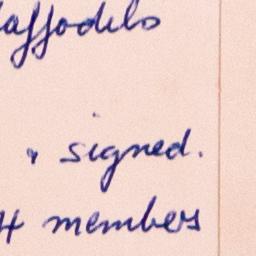 daffodils
" signed.
4 members